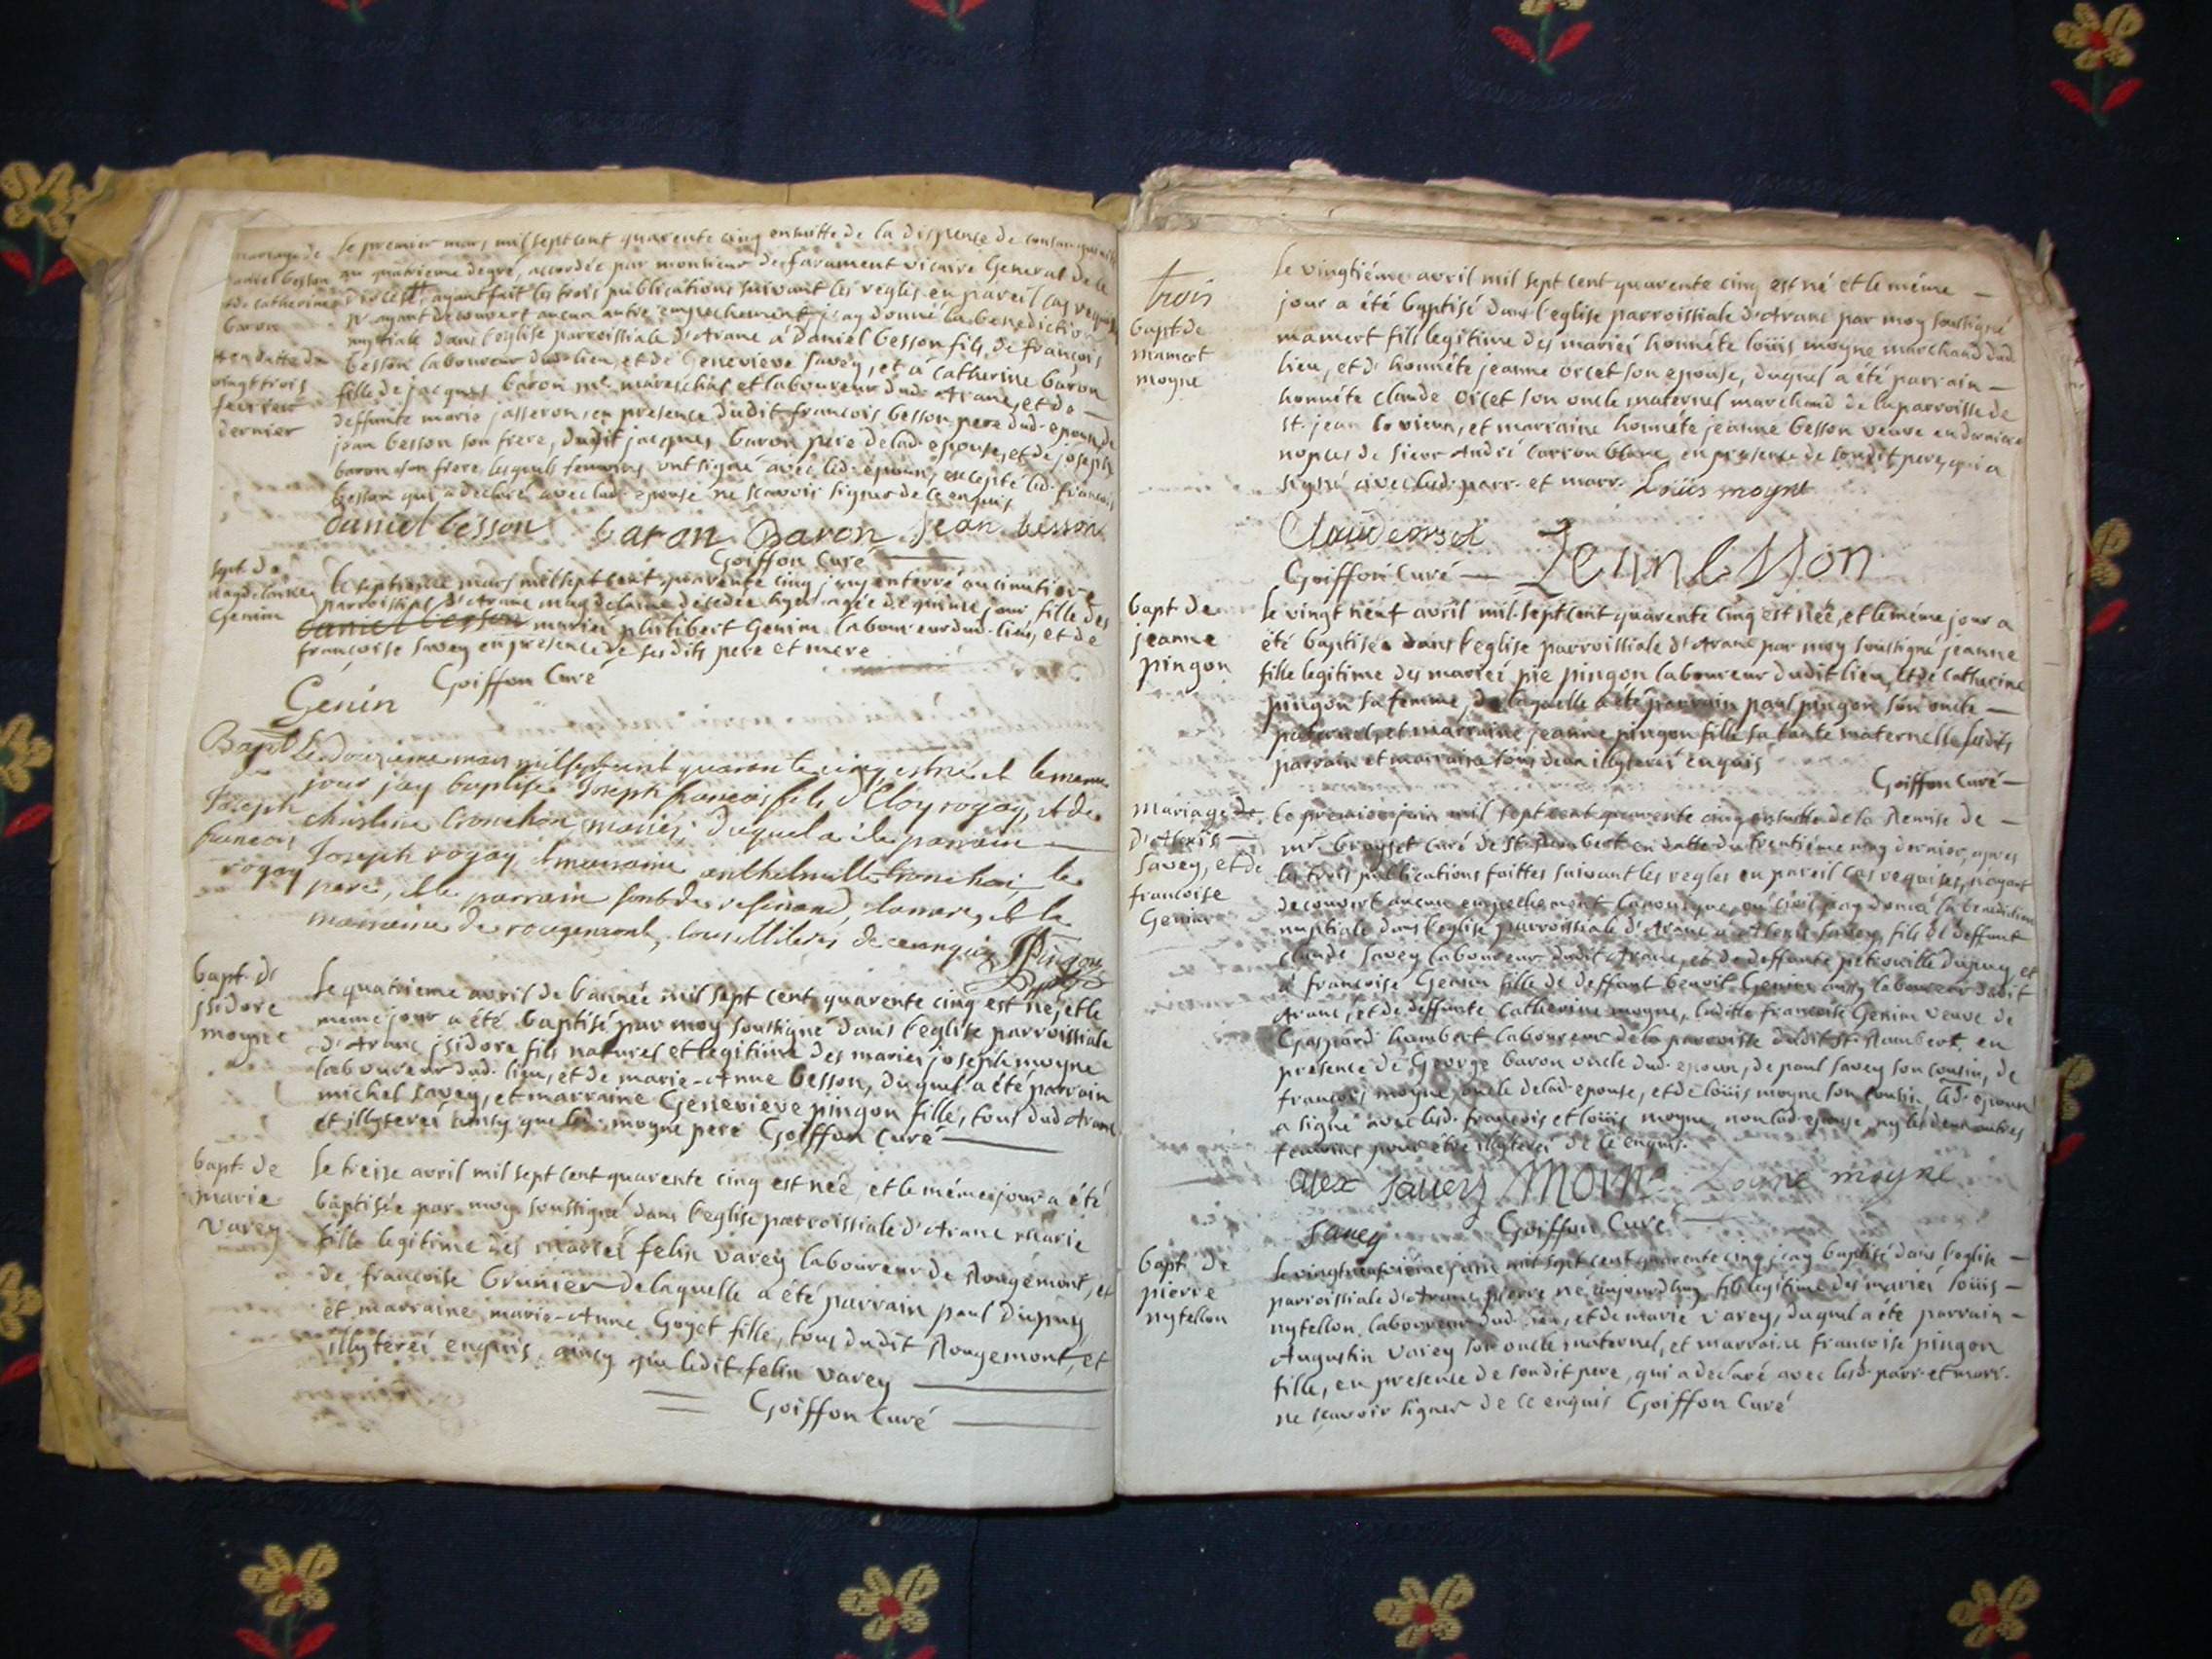 mariage de
daniel besson
et de catherine
baron
en datte du
vingt trois
fevrier
dernier
le premier mars mil sept cent quarente cinq ensuitte de la dispense de consanguinité
au quatrieme degré, accordée par monsieur de farament vicaire General de le
Diocese, ayant fait les trois publications suivant les regles en pareil cas requises
n'ayant decouvert aucun autre empechement j'ay donné la benediction
nuptiale dans l'eglise parroissiale d'Aranc à Daniel besson fils de françois
besson laboureur dud. lieu, et de Genevieve savey, et à Catherine baron
fille de jacques baron me. mareschal et laboureur dud. Aranc, et de
deffunte marie jasseron, en presence dudit françois besson pere dud. epoux, de
jean besson son frere, dudit jacques baron pere de lad. epouse, et de joseph
baron son frere, lesquels temoins ont signé avec led. epoux, excepté led. françois
besson qui a declaré avec lad. epouse ne scavoir signer de ce enquis
daniel besson baron baron jean besson
Goiffon Curé
sept. de
magdelaine
Genin
le septieme mars mil sept cent quarente cinq j'ay enterré au cimetiere
parroissial d'Aranc magdelaine décedée hyer agée de quinze jours fille des
daniel besson mariés philibert Genin laboureur dud. lieu, et de
françoise savey en presence de sesdits pere et mere
Genin Goiffon Curé
Bapt
Joseph
francois
rogay
Le douzieme mars mil sept cent quarente cinq est né et le meme
jour jay baptisé Joseph francois fils d'Eloy rogay, et de
christine tronchon mariés; duquel a ete parrain
Joseph rogay et marraine anthelmette tronchon, le
pere, et le parrain sont de resinand, la mere, et la
marraine de rougemont, tous illiteres de ce enquis Pingon
bapt. de
jsidore
moyne
le quatrieme avril de l'année mil sept cent quarente cinq est né, et le
meme jour a été baptisé par moy soussigné dans l'eglise parroissiale
d'Aranc jsidore fils naturel et legitime des mariés joseph moyne
laboureur dud. lieu, et de marie-Anne besson, duquel a été parrain
michel savey, et marraine Genevieve pingon fille, tous dud. Aranc
et illyterés ainsy que led. moyne pere Goiffon Curé
bapt. de
marie
varey
le treize avril mil sept cent quarente cinq est née, et le méme jour a été
baptisée par moy soussigné dans l'eglise parroissiale d'Aranc marie
fille legitime des mariés felin varey laboureur de Rougemont, et
de françoise brunier de laquelle a été parrain paul dupuy
et marraine marie-Anne Goyet fille, tous dudit Rougemont, et
illyterés enquis ainsy que ledit felin varey
Goiffon Curé
trois
bapt. de
mamert
moyne
le vingtiéme avril mil sept cent quarente cinq est né et le méme
jour a été baptisé dans l'eglise parroissiale d'Aranc par moy soussigné
mamert fils legitime des mariés honnéte loüis moyne marchand dud.
lieu, et d'honnéte jeanne orcet son epouse, duquel a été parrain
honnéte claude orcet son oncle maternel marchand de la parroisse de
st. jean le vieux, et marraine honnéte jeanne besson veuve en derniere
nopces de sieur André Carron blanc, en presence de sondit pere, qui a
signé avec lesd. parr. et marr. Loüis moyne
Claude orset
Goiffon Curé Jeanne besson
bapt. de
jeanne
pingon
le vingt neuf avril mil sept cent quarente cinq est née, et le méme jour a
été baptisée dans l'eglise parroissiale d'Aranc par moy soussigné jeanne
fille legitime des mariés pie pingon laboureur dudit lieu, et de catherine
pingon sa femme, de laquelle a été parrain paul pingon son oncle
paternel, et marraine jeanne pingon fille sa tante maternelle lesdits
parrain et marraine tous deux illyterés enquis
Goiffon Curé
mariage de
d'Alexis
savey, et de
francoise
Genin
le premier juin mil sept cent quarente cinq ensuitte de la Remise de
mr. brayset curé de St. Rambert en datte du trentiéme may dernier, apres
les trois publications faittes suivant les regles en pareil cas requises, n'ayant
decouvert aucun empechement canonique, ou civil j'ay donné la benediction
nuptiale dans l'eglise parroissiale d'Aranc a Alexis savey fils de deffunt
claude savey laboureur dudit Aranc, et de deffunte petronille dupuy, et
à françoise Genin fille de deffunt benoit Genin aussy laboureur dudit
Aranc, et de deffunte Catherine moyne, laditte francoise Genin veuve de
Gaspard humbert laboureur de la parroisse dudit St. Rambert, en
presence de George baron oncle dud. epoux, de paul savey son cousin, de
francois moyne oncle de lad. epouse, et de loüis moyne son cousin, led. epoux
a signé avec lesd. francois et loüis moyne, non lad. epouse, ny les deux autres
temoins pour être illyterés de ce enquis.
alex savey Moine Louis moyne
savey Goiffon Curé
bapt. de
pierre
nytellon
le vingt neuvieme juin mil sept cent quarente cinq j'ay baptisé dans l'eglise
parroissiale d'Aranc pierre né aujourdhuy fils legitime des mariés loüis
nytellon laboureur dud. lieu, et de marie varey, duquel a été parrain
Augustin varey son oncle maternel, et marraine francoise pingon
fille, en presence de sondit pere, qui a declaré avec lesd. parr. et marr.
ne scavoir signer de ce enquis Goiffon Curé